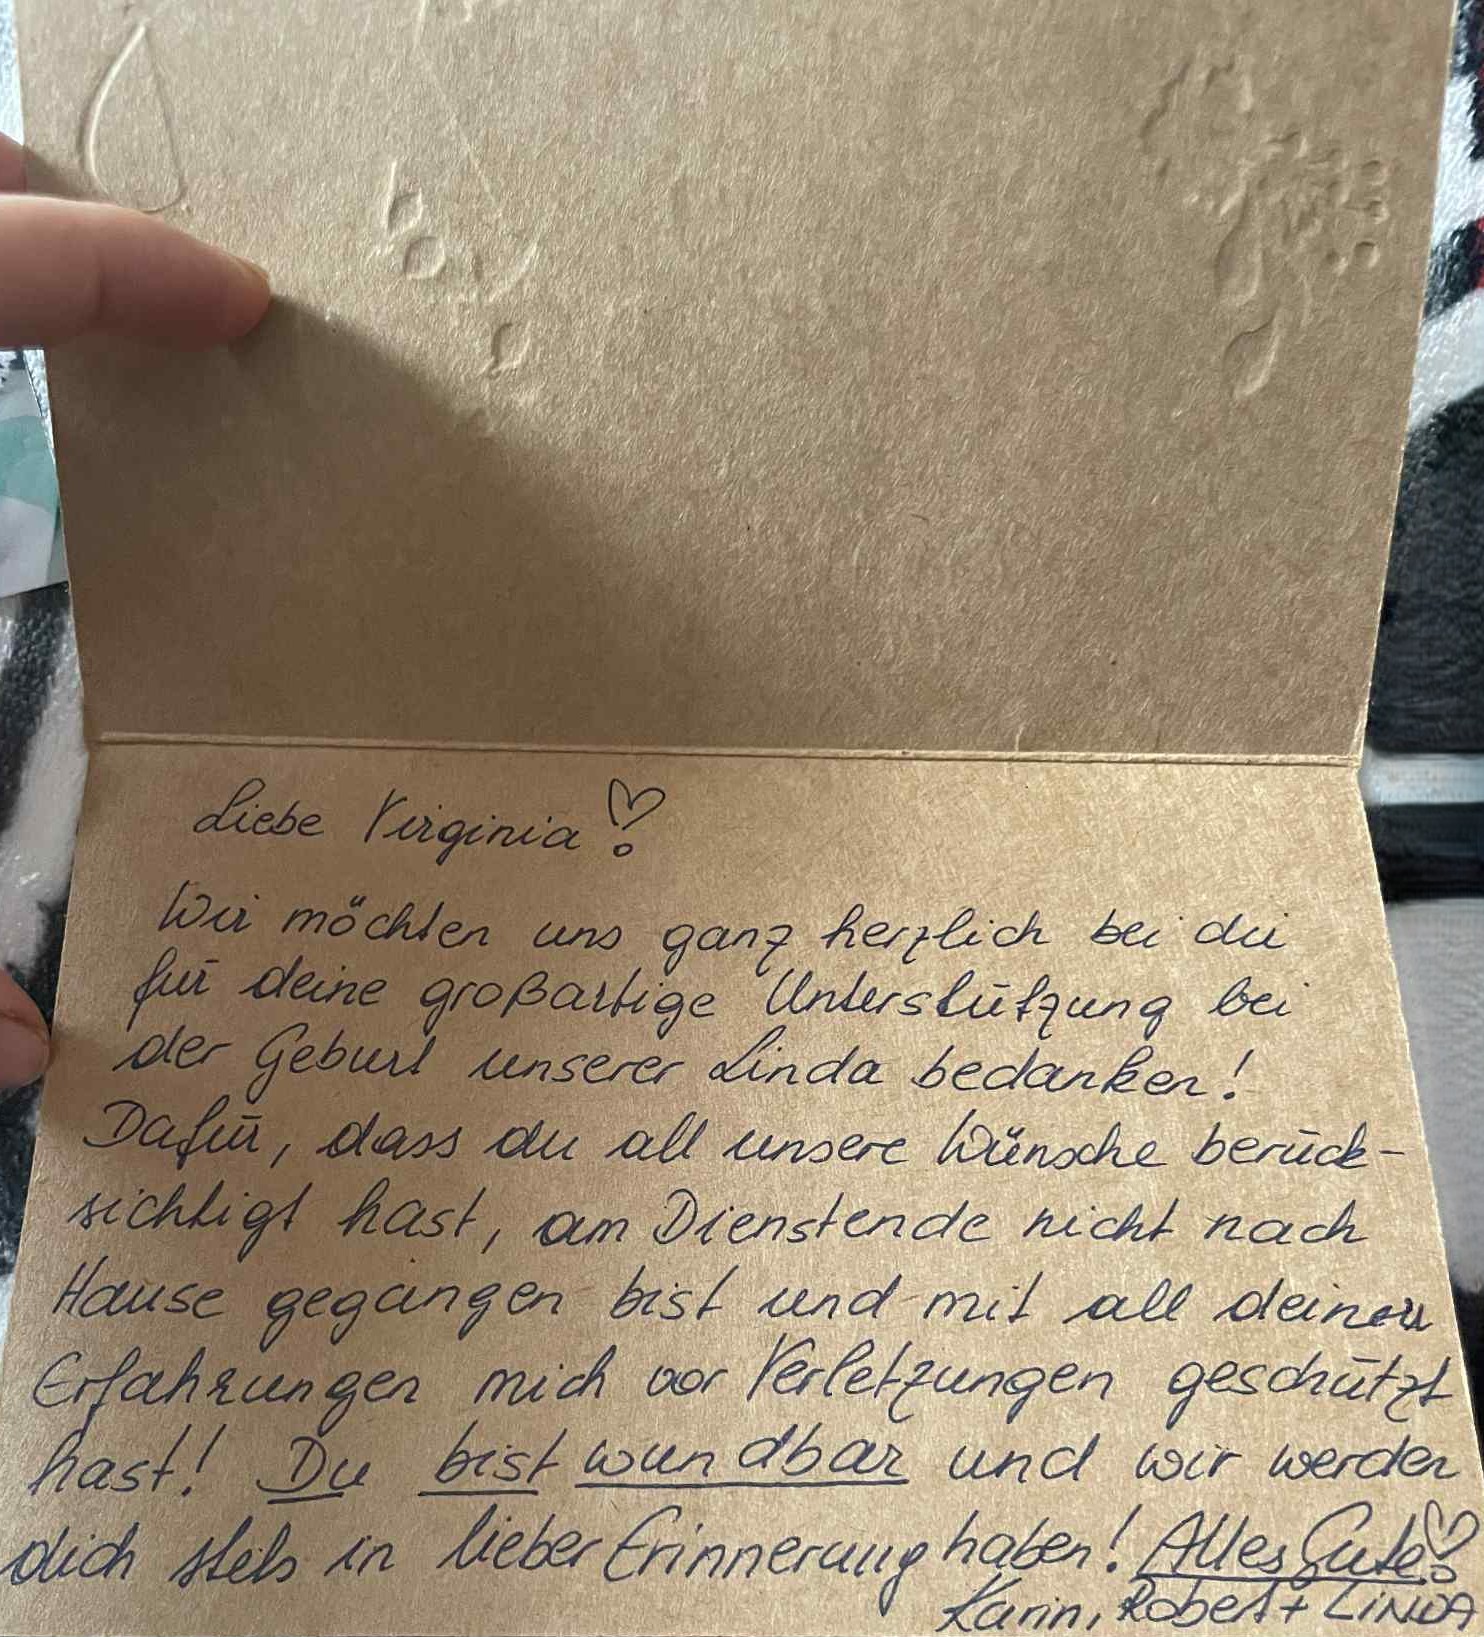 Liebe Virginia!
Wir möchten uns ganz herzlich bei dir
für deine großartige Unterstützung bei
der Geburt unserer Linda bedanken!
Dafür, dass du all unsere Wünsche berück-
sichtigt hast, am Dienstende nicht nach
Hause gegangen bist und mit all deinen
Erfahrungen mich vor Verletzungen geschützt
hast! Du bist wundbar und wir werden
dich stets in lieber Erinnerung haben! Alles Gute!
Karin, Robert + LINDA